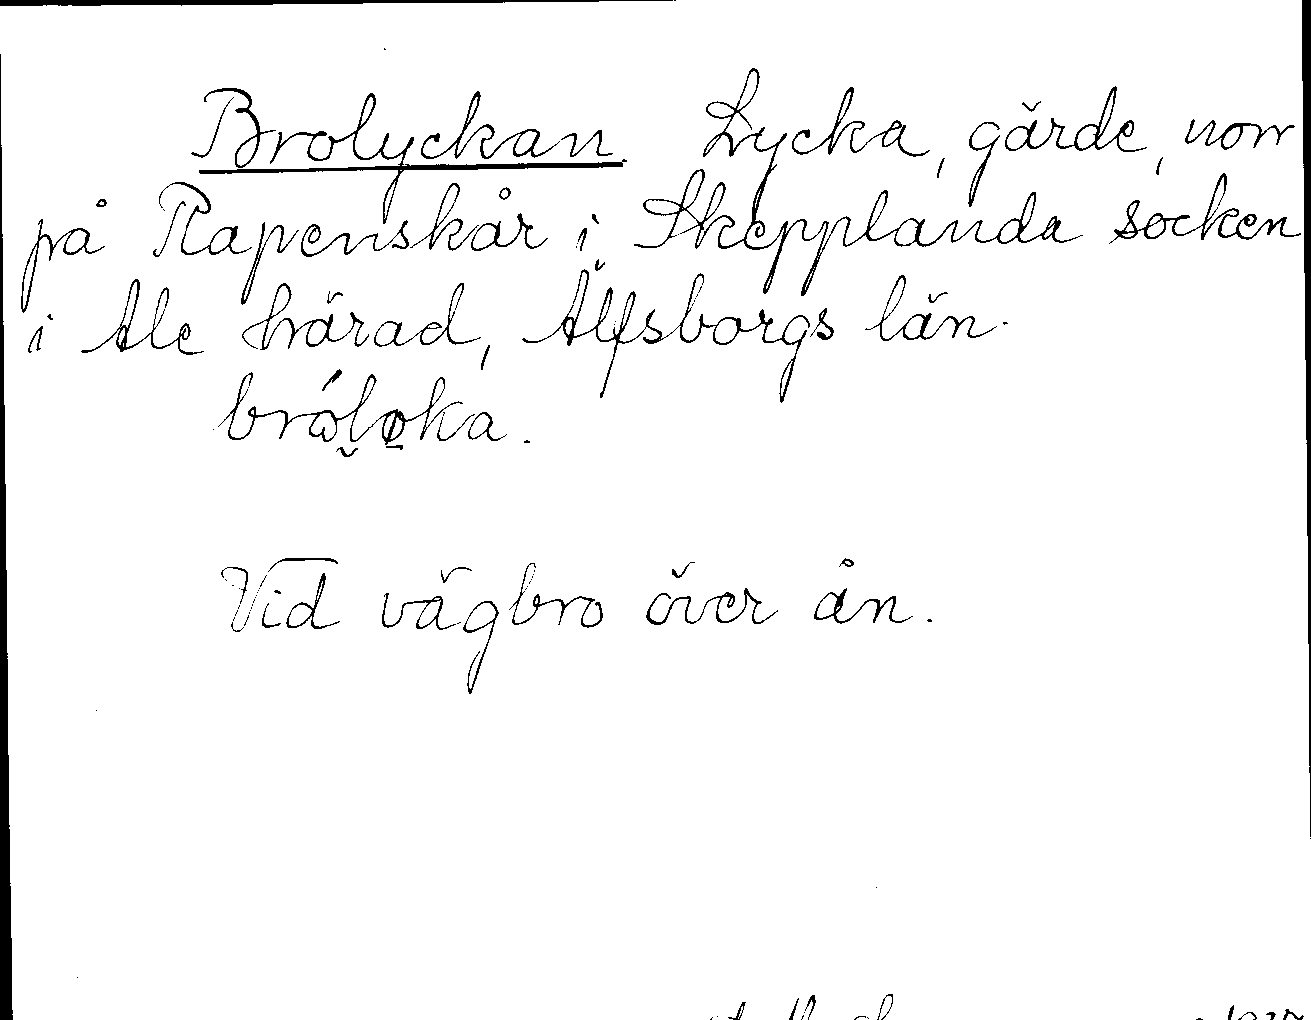 Brolyckan. Lycka, gärde, norr
på Rapenskår i Skepplanda socken
i Ale härad, Älfsborgs län.
bról̯ø̱ka.
Vid vägbro över ån.